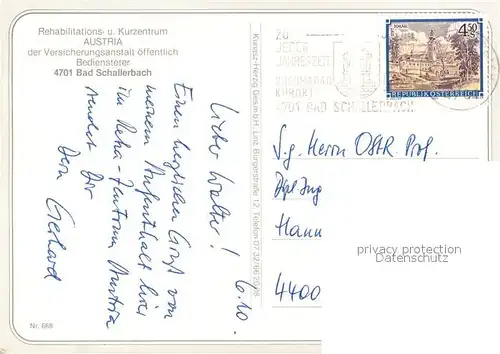 Rehabilitations- u. Kurzentrum
AUSTRIA
der Versicherungsanstalt öffentlich
Bediensteter
4701 Bad Schallerbach
6.10.
Lieber Walter!
Einen herzlichen Gruß von
meinem Aufenthalt hier
im Reha-Zentrum Austria
sendet Dir
Dein Gerhard
Nr. 668
Kunosz-Herzog Ges.m.b.H., Linz, Bürgerstraße 12, Telefon 07 32/66 20 28
ZU
JEDER
JAHRESZEIT
KURORT
4701 BAD SCHALLERBACH
4.50
REPUBLIK ÖSTERREICH
S.g. Herrn OStR Prof.
Dipl Ing
Hann
4400
privacy protection
Datenschutz